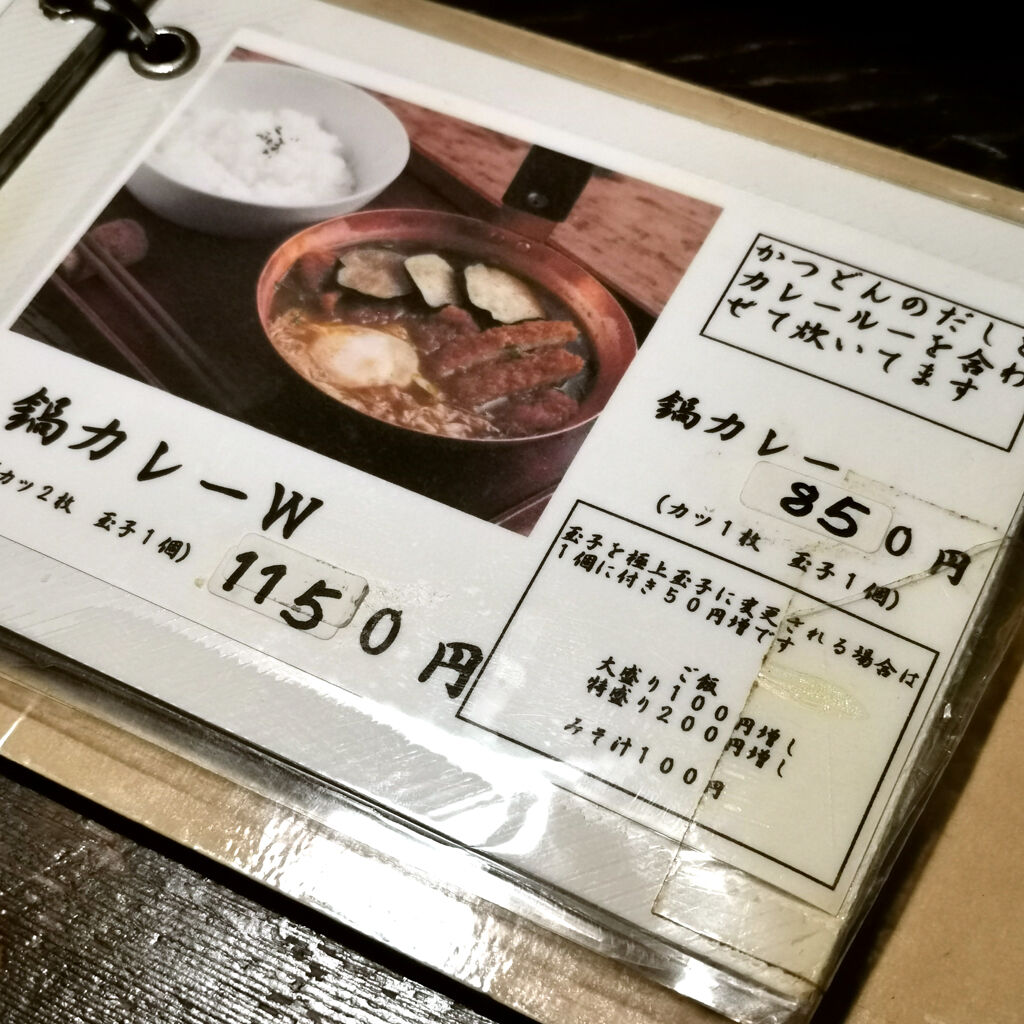 かつどんのだしと
カレールーを合わ
せて炊いてます
鍋カレー
850円
(カツ1枚 玉子1個)
鍋カレーW
(カツ2枚 玉子1個)
1150円
玉子を極上玉子に変更される場合は
1個に付き50円増です
ご飯
大盛り100円増し
特盛り200円増し
みそ汁100円